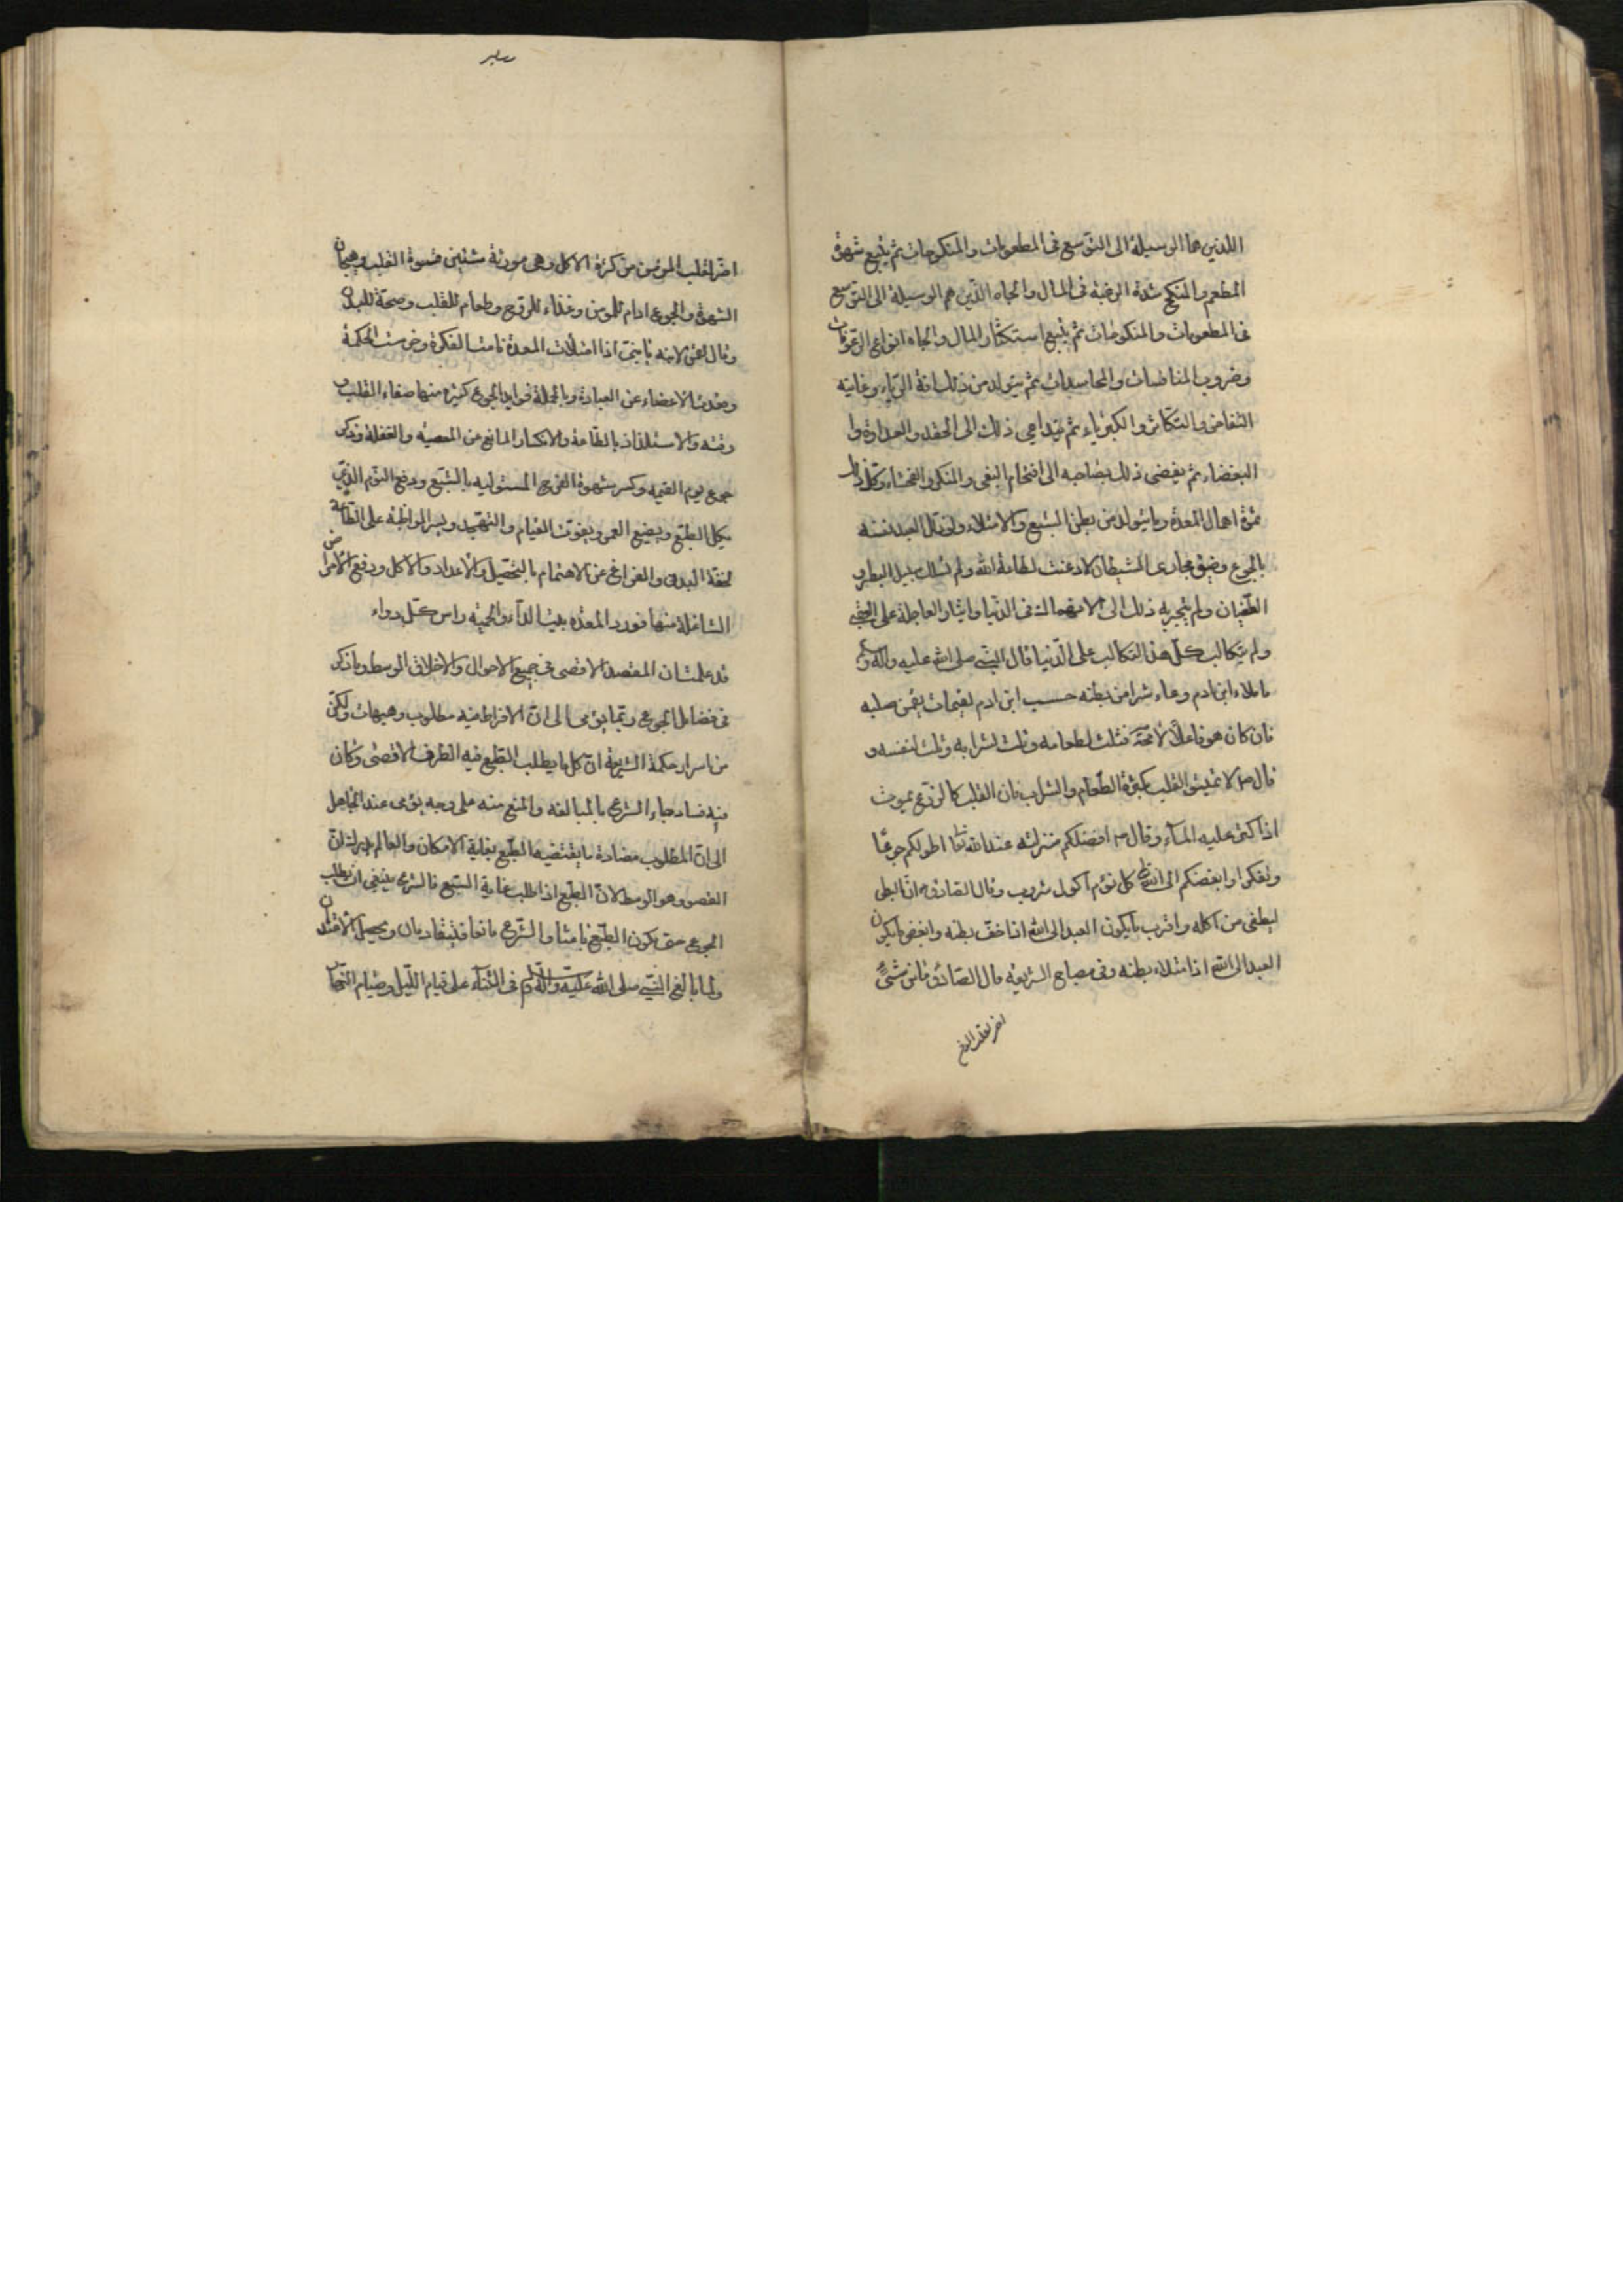 اللذين هما الوسيلة الى التوسع فى المطعومات والمنكوحات ثم يتبع شهوة
المطعم والمنكح شدة الرغبة فى المال والجاه الذين هم الوسيلة الى التوسع
فى المطعومات والمنكوحات ثم يتبع استكثار المال والجاه انواع الرعونات
وضروب المنافسات والمحاسدات ثم يتولد من ذلك افة الرياء وغايته
التفاخر والتكاثر والكبرياء ثم يتداعى ذلك الى الحقد والعداوة وا
البغضاء ثم يفضى ذلك بصاحبه الى اقتحام البغى والمنكر والفحشاء وكل ذلك
ثمرة اهمال المعدة وما يتولد من بطر الشبع والامتلاء ولو ذلل العبد نفسه
بالجوع وضيق مجارى الشيطان لاذعنت لطاعة الله ولم تسلك سبيل البطر و
الطغيان ولم ينجر به ذلك الى الانهماك فى الدنيا وايثار العاجلة على العقبى
ولم يتكالب كل هذا التكالب على الدنيا قال النبى صلى الله عليه واله وسلم
ما ملاء ابن ادم وعاء شرا من بطنه حسب ابن ادم لقيمات يقمن صلبه
فان كان هو فاعلا لا محة فثلث لطعامه وثلث لشرابه وثلث لنفسه و
قال ص لا تميتوا القلب بكثرة الطعام والشراب فان القلب كالزرع يموت
اذا كثر عليه الماء وقال ص افضلكم منزلة عند الله تعا اطولكم جوعا
وتفكرا وابغضكم الى الله تعا كل نؤم اكول شروب وقال الصادق ع ان البطن
ليطغى من اكله واقرب ما يكون العبد الى الله اذا خف بطنه وابغض ما يكون
العبد الى الله اذا امتلاء بطنه وفى مصباح الشريعة قال الصادق ع ما من شئ
اضر لقلب المؤمن
اضر لقلب المؤمن من كثرة الاكل وهى مورثة شيئين قسوة القلب وهيجان
الشهوة والجوع ادام للمؤمن وغذاء للروح وطعام للقلب وصحة للبدن
وقال لقمن لابنه يا بنى اذا امتلأت المعدة نامت الفكرة وخرست الحكمة
وقعدت الاعضاء عن العبادة وبالجملة فوايد الجوع كثيرة منها صفاء القلب و
رقته والاستلذاذ بالطاعة والانكسار المانع من المعصية والغفلة وتذكر
جوع يوم القيمة وكسر شهوة الفرج المستولية بالشبع ودفع النوم الذى
يكل الطبع ويضيع العمر ويفوت القيام والتهجد ويسر المواظبة على الطاعة
لخفة البدن والفراغ عن الاهتمام بالتحصيل والاعداد والاكل ودفع الامراض
الشاغلة منها فورد المعدة بيت الداء والحمية راس كل دواء
قد علمت ان المقصد الاقصى فى جميع الاحوال والاخلاق الوسط وما ذكر
فى فضايل الجوع ربما يؤمى الى ان الافراط فيه مطلوب وهيهات ولكن
من اسرار حكمة الشريعة ان كل ما يطلب الطبع فيه الطرف الاقصى وكان
فيه فساد جاء الشرع بالمبالغه والمنع منه على وجه يؤمى عند الجاهل
الى ان المطلوب مضادة ما يقتضيه الطبع بغاية الامكان والعالم يدرك ان
المقصود هو الوسط لان الطبع اذا طلب غاية الشبع فالشرع ينبغى ان يطلب
الجوع حتى يكون الطبع باعثا والشرع مانعا فيتقادمان ويحصل الاعتدال
ولما بالغ النبى صلى الله عليه واله وسلم فى الثناء على قيام الليل وصيام النهار